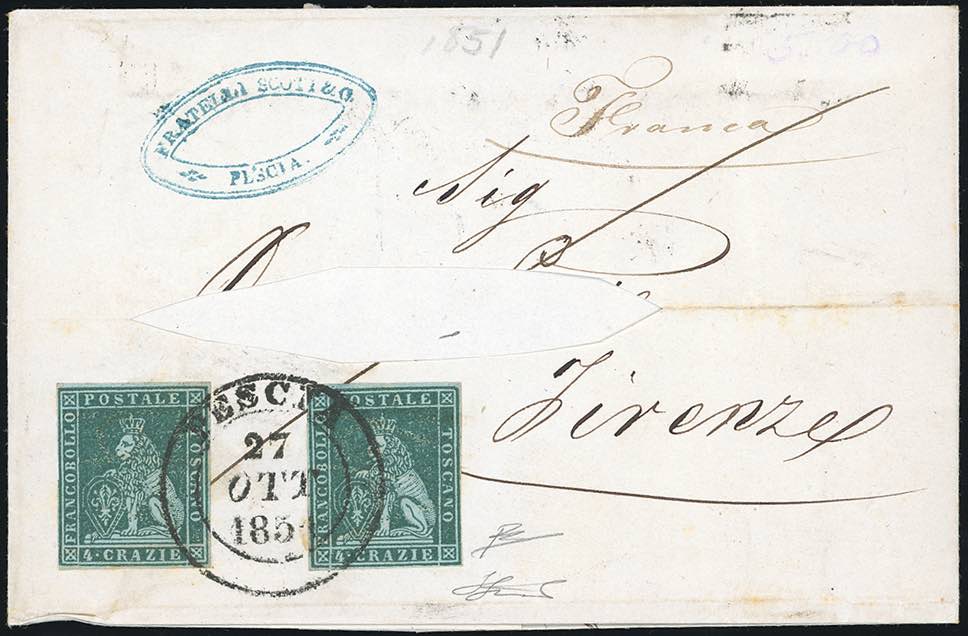 1851
FRATELLI SCOTI & C.
PESCIA.
Franca
Sig
Firenze
POSTALE
FRANCOBOLLO
TOSCANO
4·CRAZIE
PESCIA
27
OTT
1851
POSTALE
FRANCOBOLLO
TOSCANO
4·CRAZIE